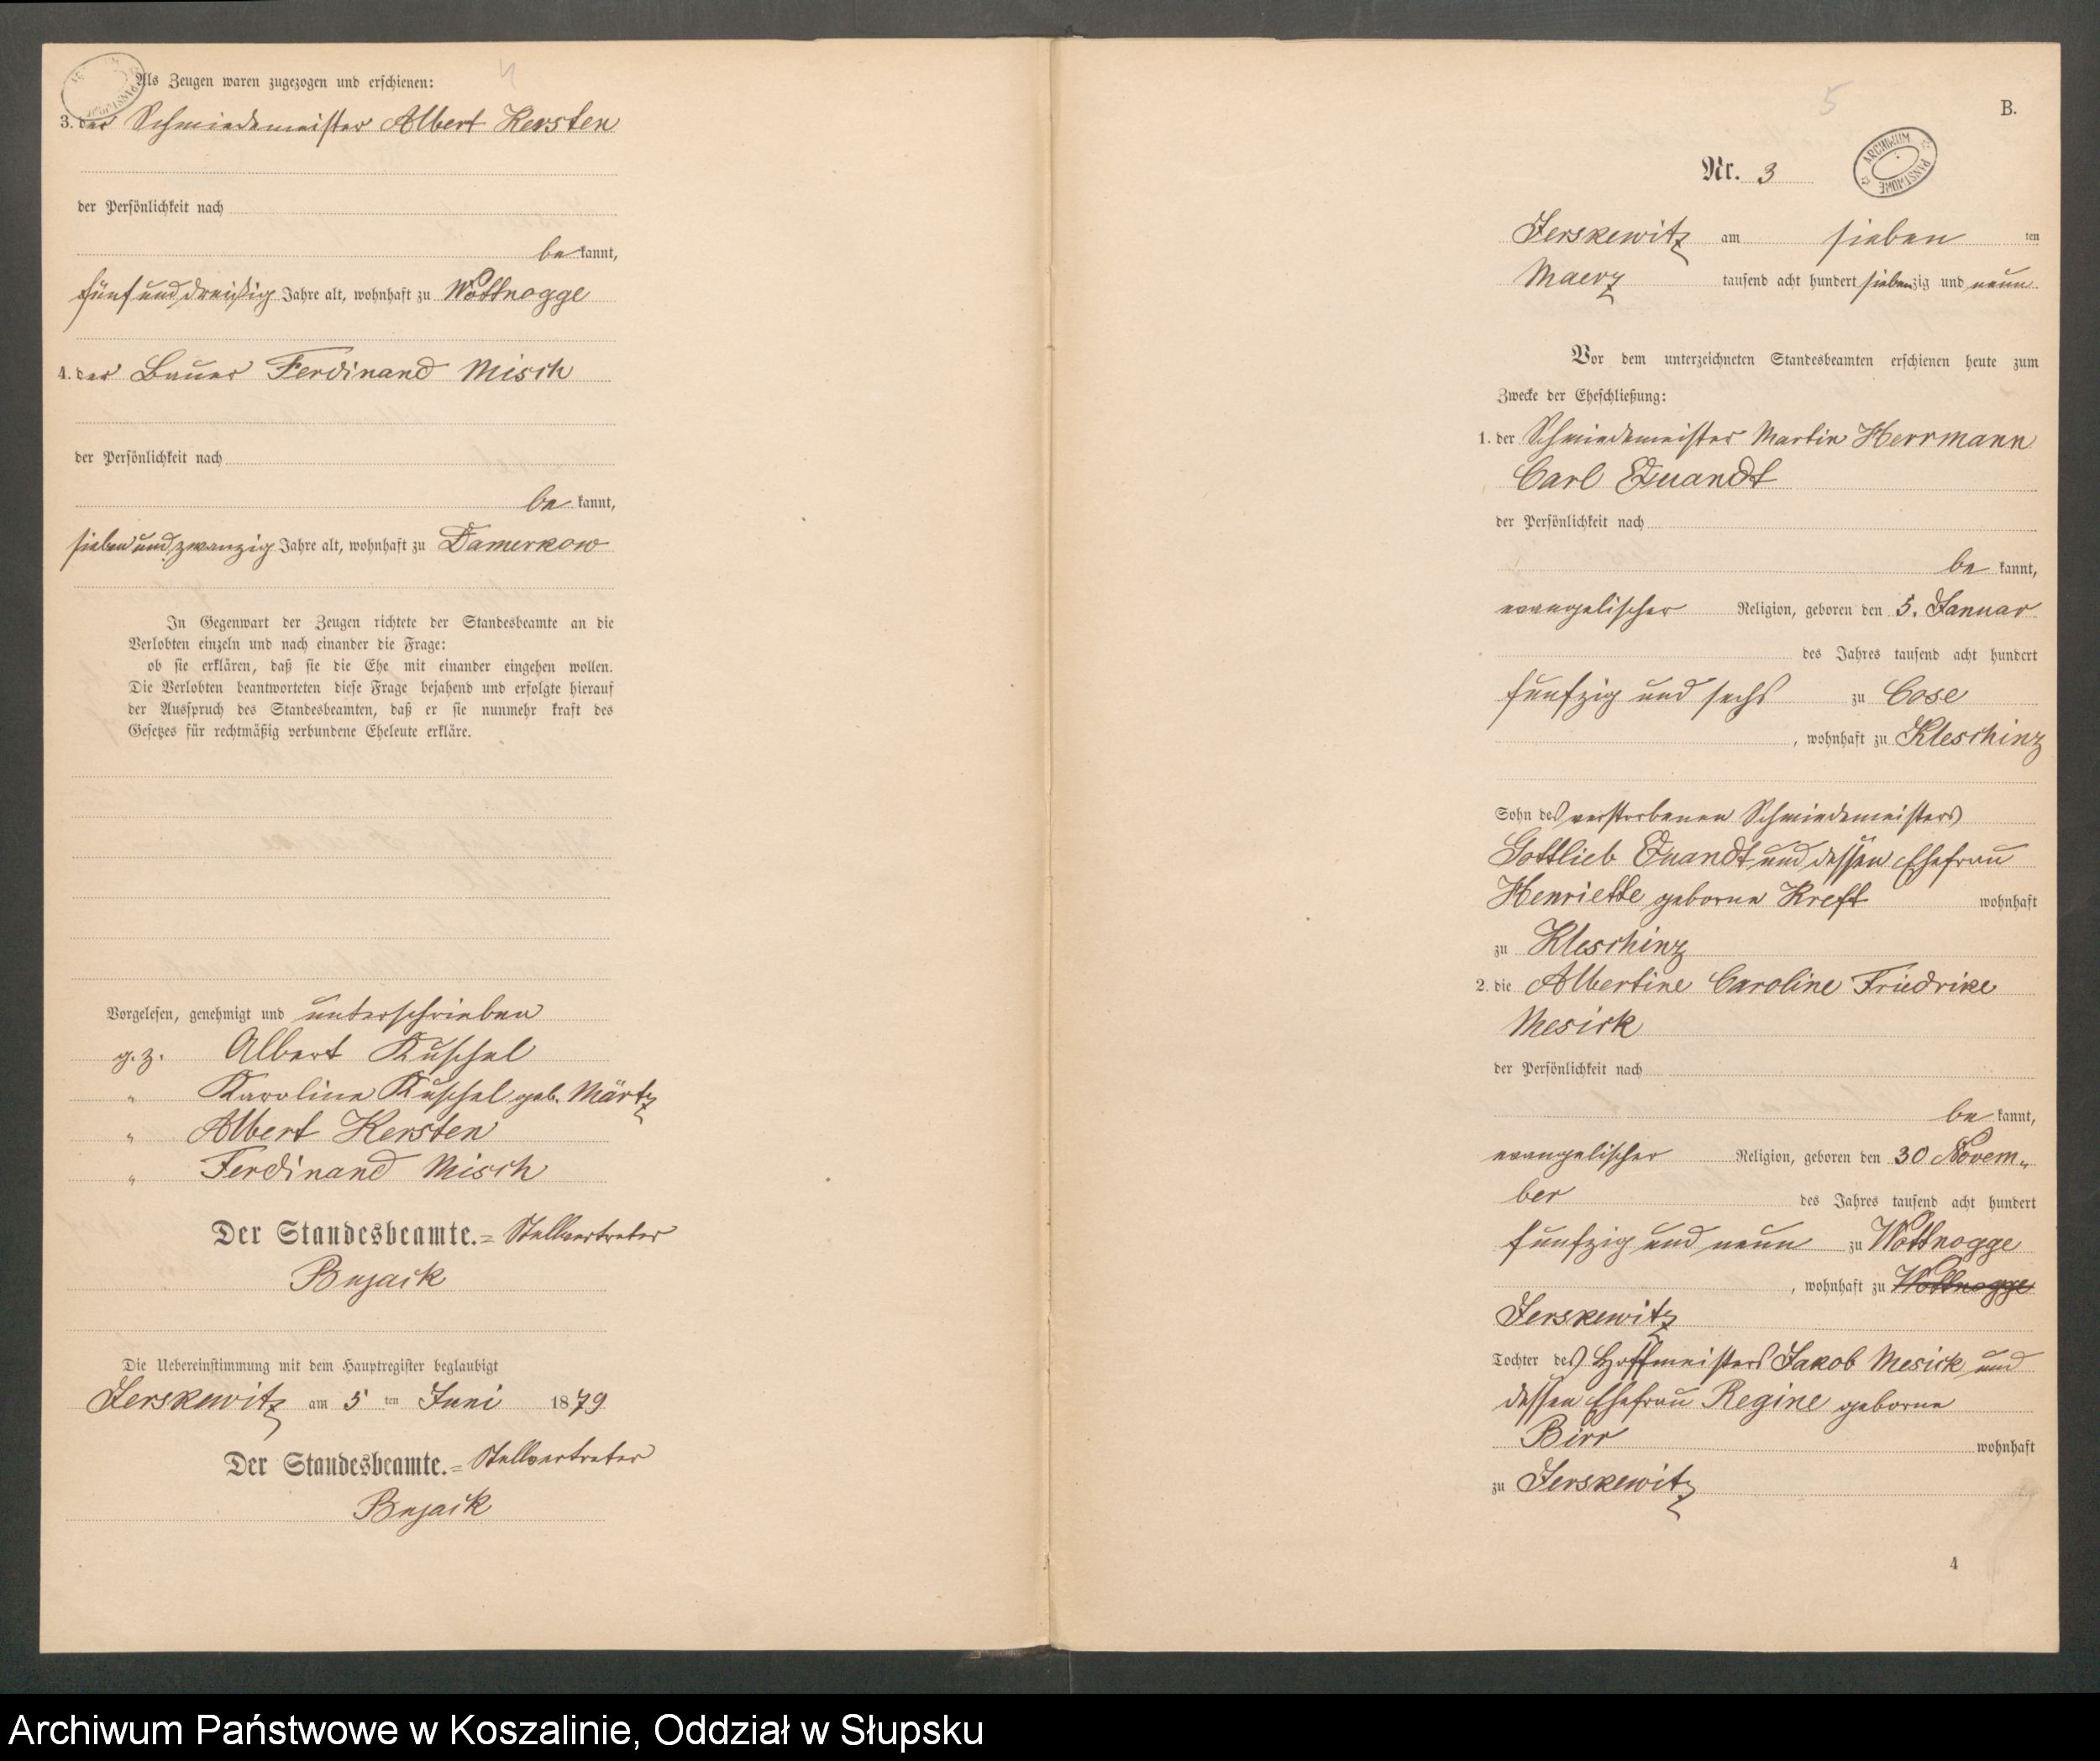 4
Als Zeugen waren zugezogen und erschienen:
3. der Schmiedemeister Albert Kersten
der Persönlichkeit nach
be kannt,
fünf und dreißig Jahre alt, wohnhaft zu Wottnogge
4. der Bauer Ferdinand Misch
der Persönlichkeit nach
be kannt,
sieben und zwanzig Jahre alt, wohnhaft zu Damerkow
In Gegenwart der Zeugen richtete der Standesbeamte an die
Verlobten einzeln und nach einander die Frage:
ob sie erklären, daß sie die Ehe mit einander eingehen wollen.
Die Verlobten beantworteten diese Frage bejahend und erfolgte hierauf
der Ausspruch des Standesbeamten, daß er sie nunmehr kraft des
Gesetzes für rechtmäßig verbundene Eheleute erkläre.
Vorgelesen, genehmigt und unterschrieben
g. z. Albert Kuschel
" Karoline Kuschel geb. Märtz
" Albert Kersten
" Ferdinand Misch
Der Standesbeamte. = Stellvertreter
Bujack
Die Uebereinstimmung mit dem Hauptregister beglaubigt
Jerskewitz am 5 ten Juni 1879
Der Standesbeamte. = Stellvertreter
Bujack
5
B.
Nr. 3
ARCHIWUM PAŃSTWOWE
Jerskewitz am sieben ten
Maerz tausend acht hundert siebenzig und neun
Vor dem unterzeichneten Standesbeamten erschienen heute zum
Zwecke der Eheschließung:
1. der Schmiedemeister Martin Herrmann
Carl Quandt
der Persönlichkeit nach
be kannt,
evangelischer Religion, geboren den 5. Januar
des Jahres tausend acht hundert
fünfzig und sechs zu Cose
, wohnhaft zu Kleschinz
Sohn des verstorbenen Schmiedemeisters
Gottlieb Quandt und dessen Ehefrau
Henriette geborne Kreft wohnhaft
zu Kleschinz
2. die Albertine Caroline Friedrike
Mesick
der Persönlichkeit nach
be kannt,
evangelischer Religion, geboren den 30 Novem„
ber des Jahres tausend acht hundert
fünfzig und neun zu Wottnogge
, wohnhaft zu Wottnogge
Jerskewitz
Tochter des Hoffmeisters Jakob Mesick und
dessen Ehefrau Regine geborne
Birr wohnhaft
zu Jerskewitz
4
Archiwum Państwowe w Koszalinie, Oddział w Słupsku